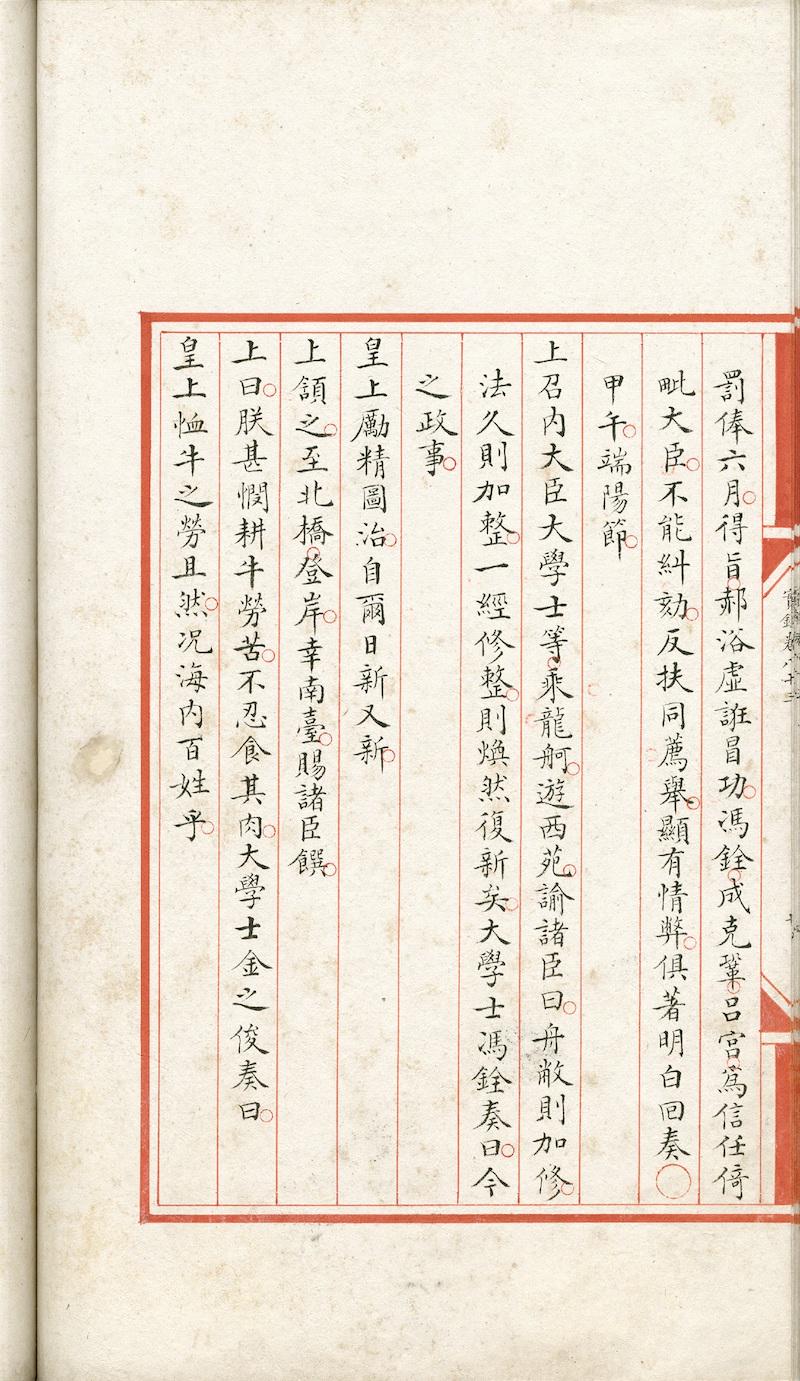 罰俸六月得旨郝浴虛誑冒功馮銓成克鞏呂宮爲信任倚
毗大臣不能糾劾反扶同薦舉顯有情弊俱著明白回奏○
甲午端陽節
上召內大臣大學士等乘龍舸遊西苑諭諸臣曰舟敝則加修
法久則加整一經修整則煥然復新矣大學士馮銓奏曰今
之政事
皇上勵精圖治自爾日新又新
上頷之至北橋登岸幸南臺賜諸臣饌
上曰朕甚憫耕牛勞苦不忍食其肉大學士金之俊奏曰
皇上恤牛之勞且然况海內百姓乎